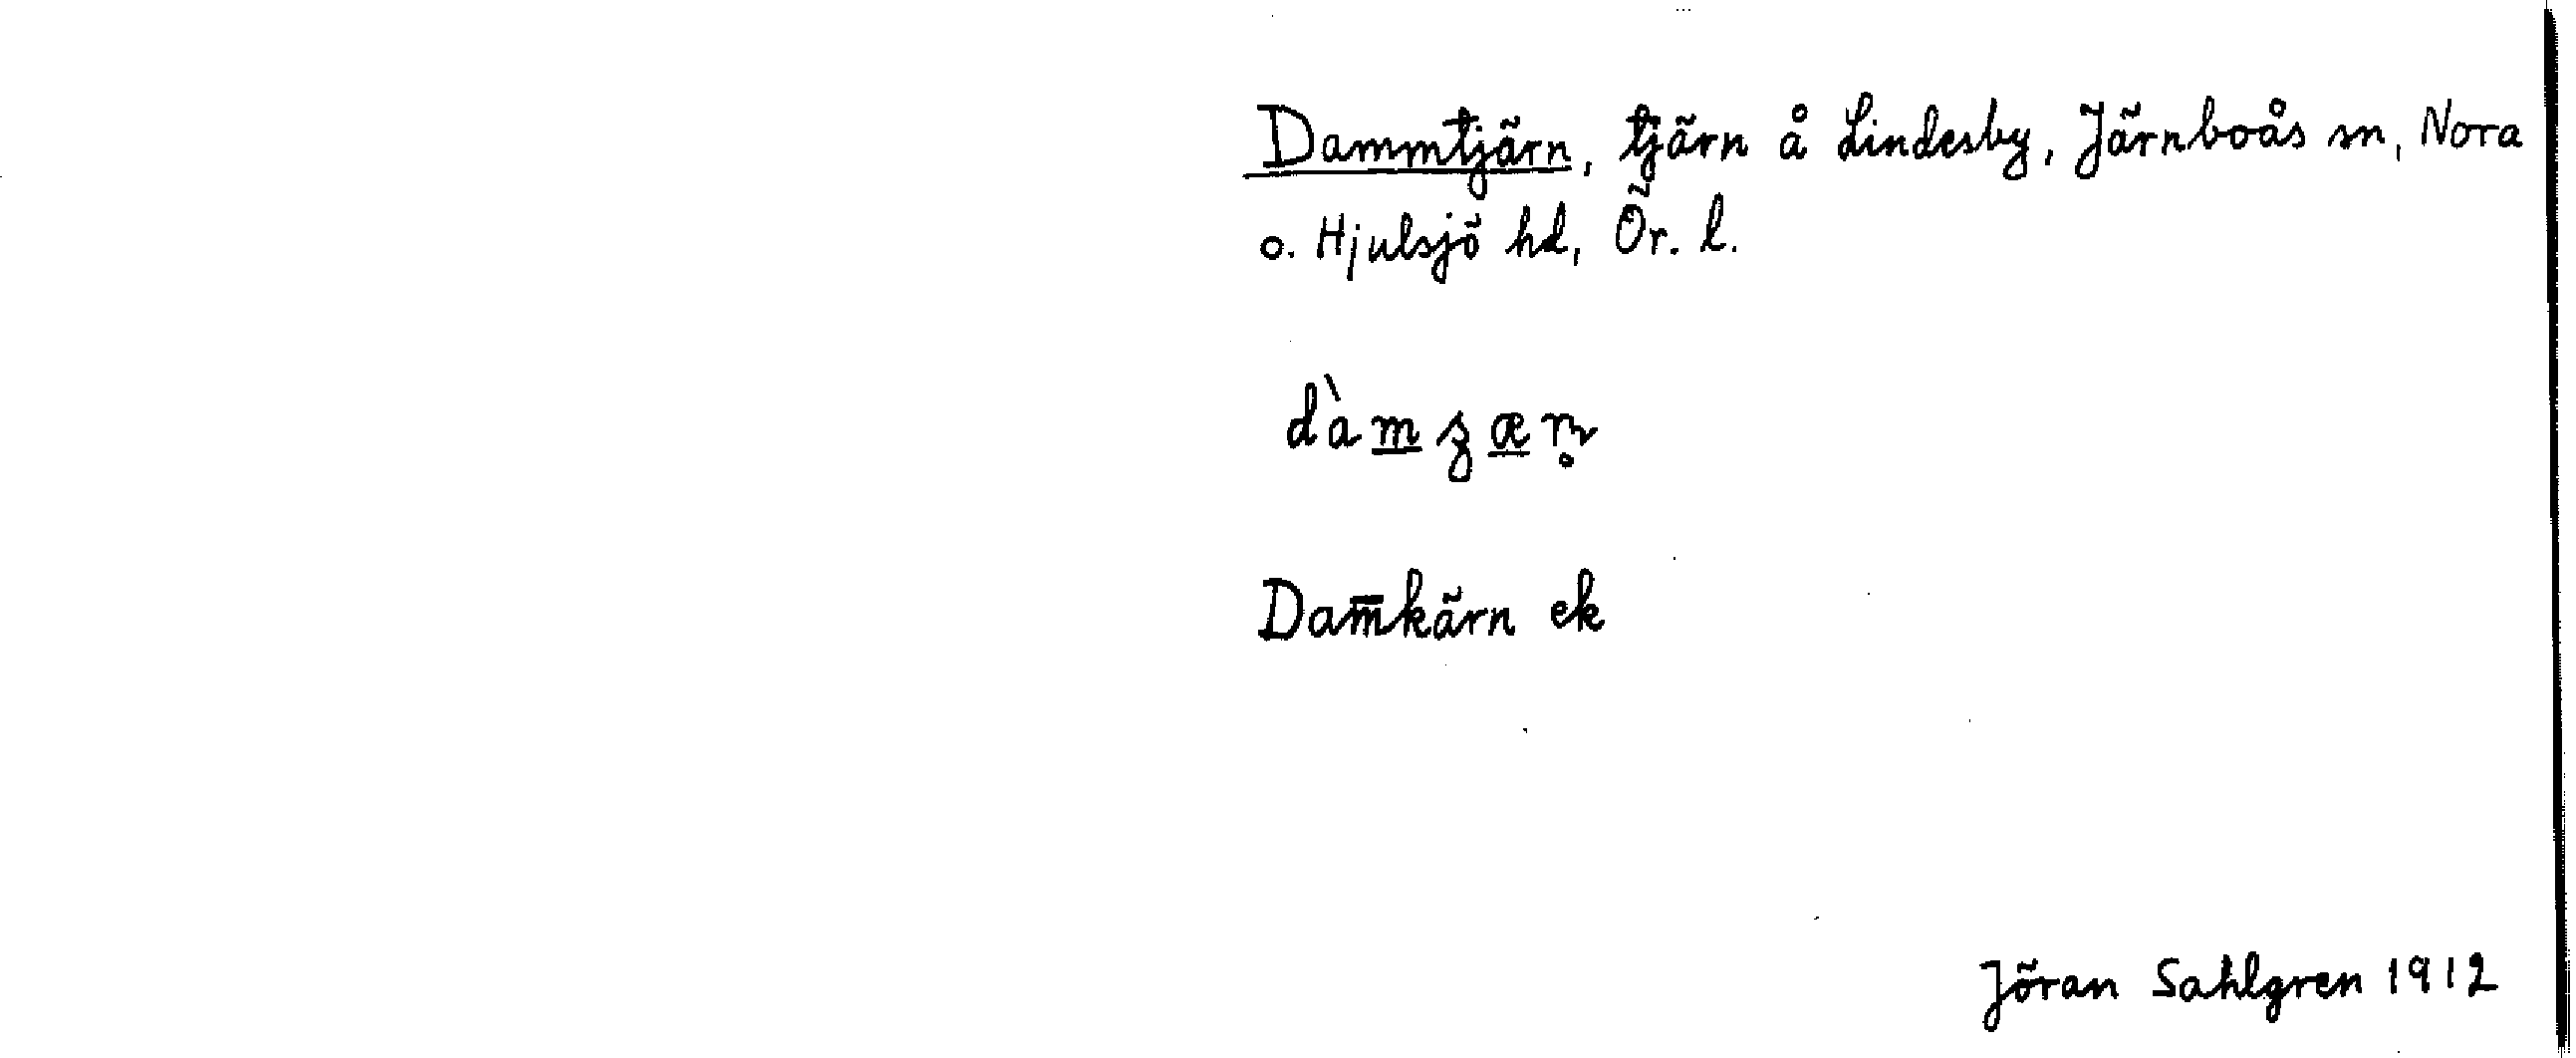 Dammtjärn, tjärn å Lindesby, Järnboås sn, Nora
o. Hjulsjö hd, Ör. l.
Dam̅kärn ek
Jöran Sahlgren 1912